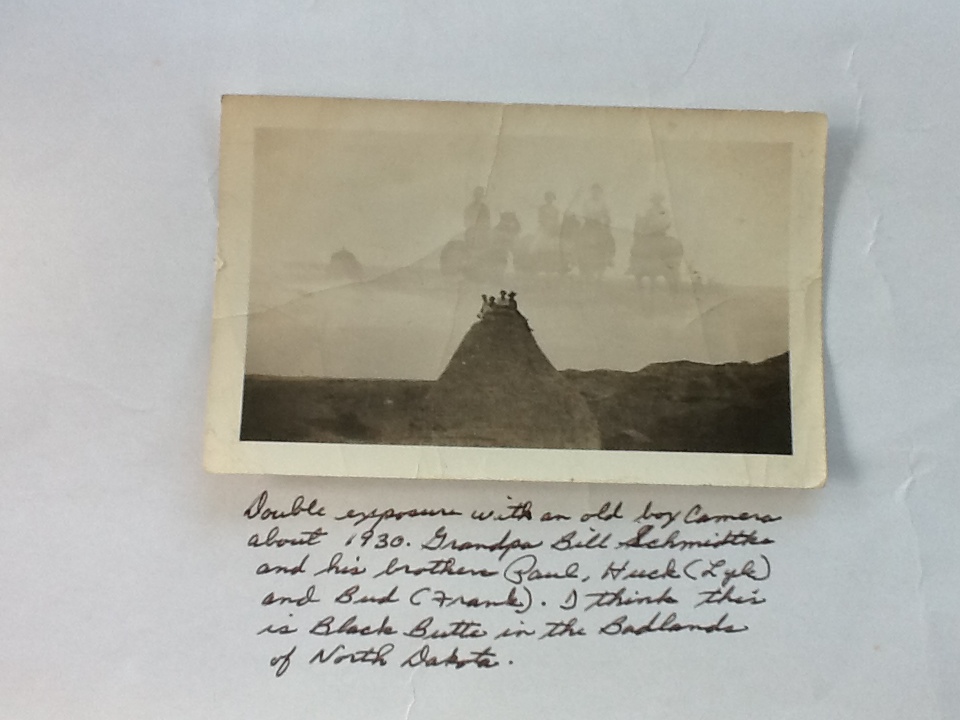 Double exposure with an old box Camera
about 1930. Grandpa Bill Schmidtke
and his brothers Paul, Huck (Lyle)
and Bud (Frank). I think this
is Black Butte in the Badlands
of North Dakota.